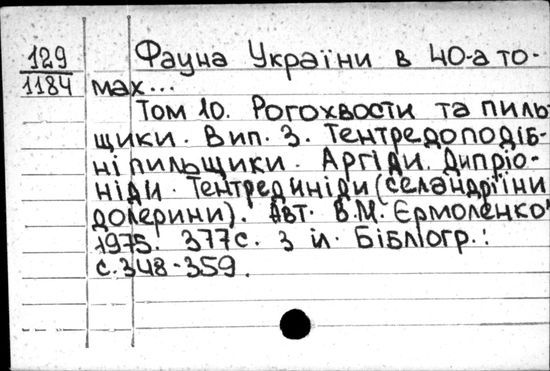 129
1184
Фауна України в 40-а то-
мах...
Том 10. Рогохвости та пиль
щики. Вип. 3. Тентредоподіб-
ні пильщики. Аргіди. Дипріо-
ніди. Тентредініди (селандріїни
долерини). Авт. В.М. Єрмоленко
1975. 377с. з іл. Бібліогр.:
с.348-359.